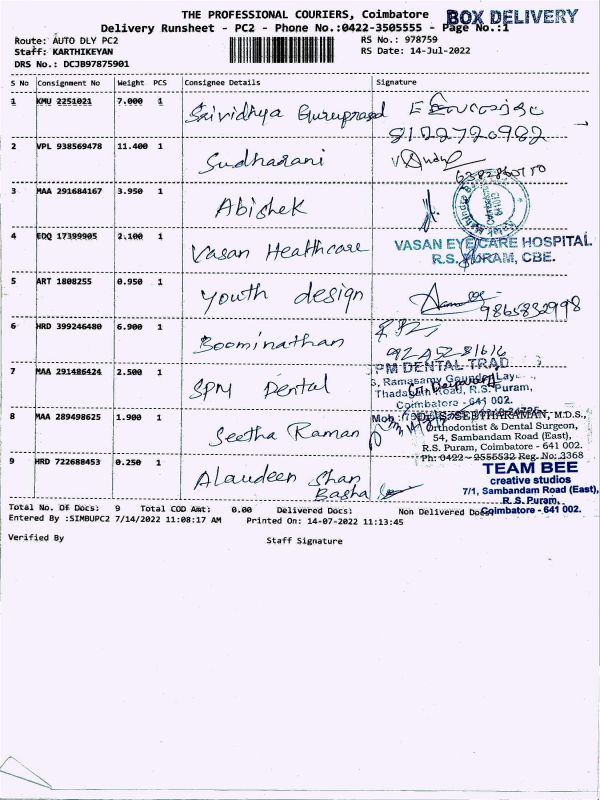 THE PROFESSIONAL COURIERS, Coimbatore
BOX DELIVERY
Delivery Runsheet - PC2 - Phone No.:0422-3505555 - Page No.:1
Route: AUTO DLY PC2
RS No.: 978759
Staff: KARTHIKEYAN
RS Date: 14-Jul-2022
DRS No.: DCJB97875901
S No Consignment No Weight PCS Consignee Details Signature
1 KMU 2251021 7.000 1 Srividhya Guruprasad
8122720982
2 VPL 938569478 11.400 1 Sudharani
3 MAA 291684167 3.950 1 Abishek
4 EDQ 17399905 2.100 1 Vasan Healthcare
VASAN EYE CARE HOSPITAL
R.S. PURAM, CBE.
5 ART 1808255 0.950 1 Youth design
9865832998
6 HRD 399246480 6.900 1 Boominathan
7 MAA 291486424 2.500 1 SPM Dental
SPM DENTAL TRAD
3, Ramasamy Gounder Lay
Thadagam Road, R.S. Puram,
Coimbatore - 641 002.
8 MAA 289498625 1.900 1 Seetha Raman
Dr. S. SEETHARAMAN, M.D.S.,
Orthodontist & Dental Surgeon,
54, Sambandam Road (East),
R.S. Puram, Coimbatore - 641 002.
Ph: 0422 - 2556532 Reg. No: 3368
9 HRD 722688453 0.250 1 Alaudeen Shan
Basha
TEAM BEE
creative studios
7/1, Sambandam Road (East),
R. S. Puram,
Coimbatore - 641 002.
Total No. Of Docs: 9 Total COD Amt: 0.00 Delivered Docs: Non Delivered Docs:
Entered By :SIMBUPC2 7/14/2022 11:08:17 AM Printed On: 14-07-2022 11:13:45
Verified By Staff Signature